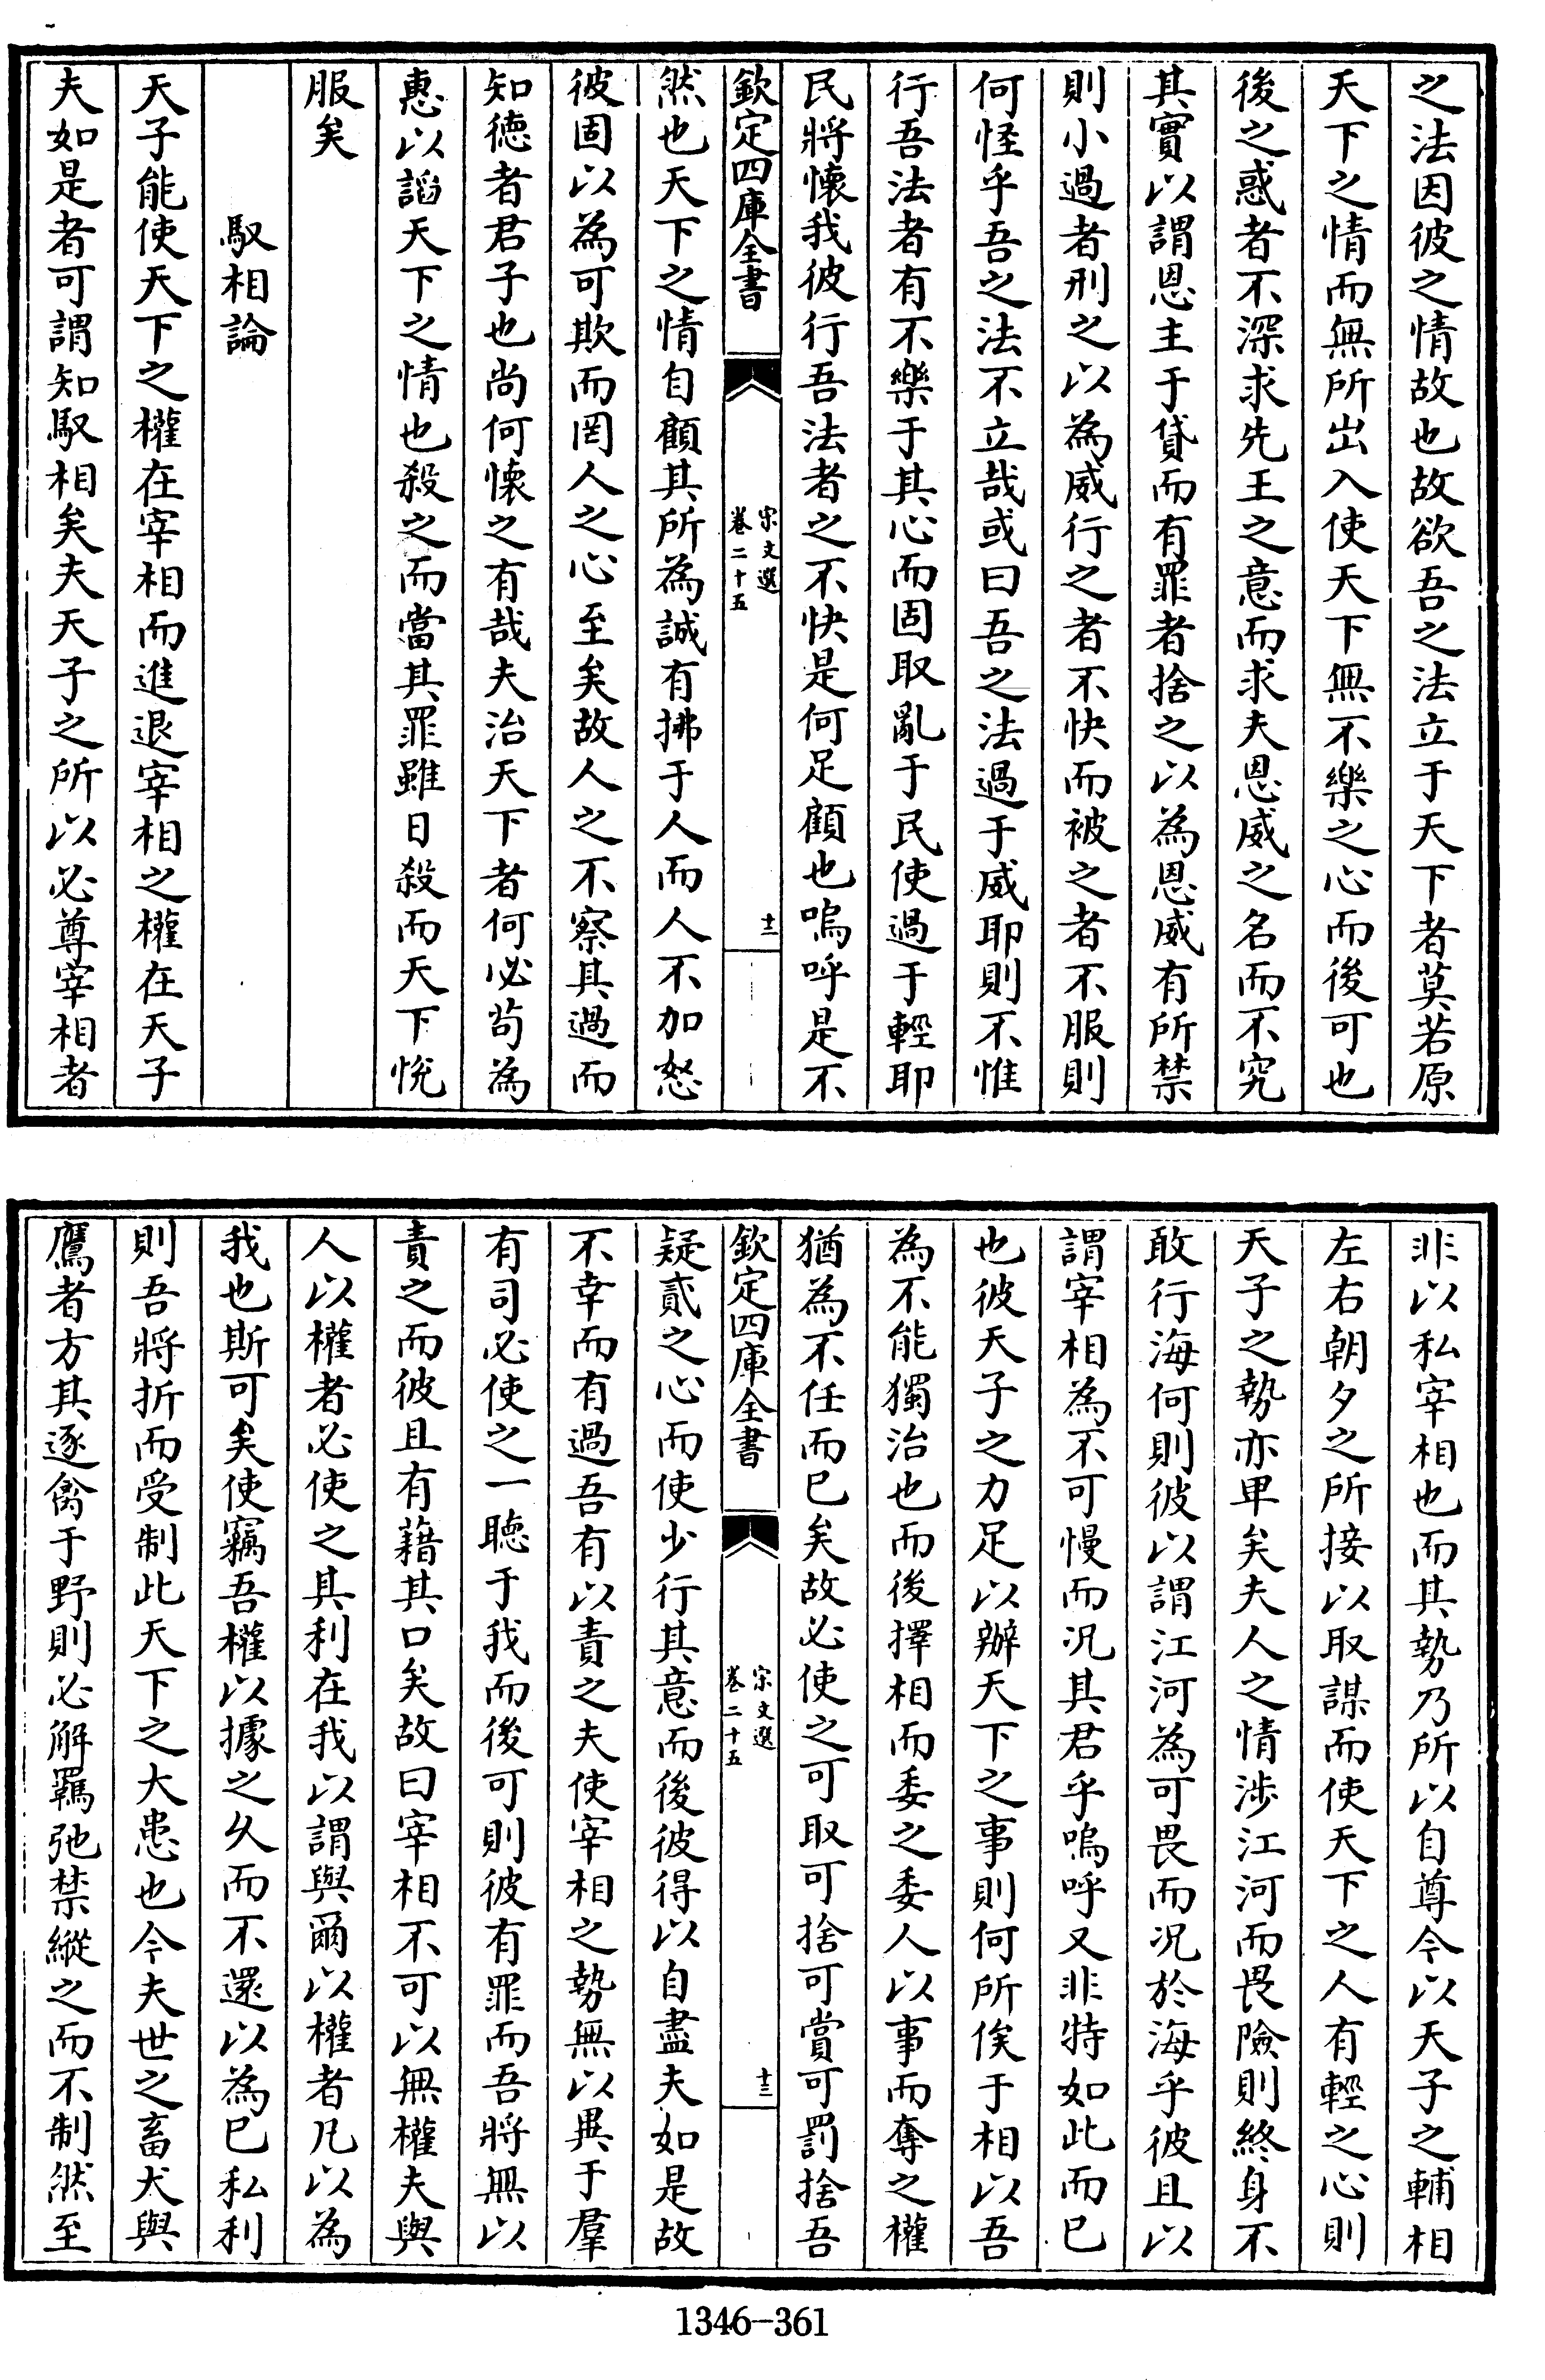 之法因彼之情故也故欲吾之法立于天下者莫若原
天下之情而無所出入使天下無不樂之心而後可也
後之惑者不深求先王之意而求夫恩威之名而不究
其實以謂恩主于貸而有罪者捨之以為恩威有所禁
則小過者刑之以為威行之者不快而被之者不服則
何怪乎吾之法不立哉或曰吾之法過于威耶則不惟
行吾法者有不樂于其心而固取亂于民使過于輕耶
民將懷我彼行吾法者之不快是何足顧也嗚呼是不
欽定四庫全書
宋文選
卷二十五
十二
然也天下之情自顧其所為誠有拂于人而人不加怒
彼固以為可欺而罔人之心至矣故人之不察其過而
知德者君子也尚何懷之有哉夫治天下者何必茍為
惠以謟天下之情也殺之而當其罪雖日殺而天下悅
服矣
馭相論
天子能使天下之權在宰相而進退宰相之權在天子
夫如是者可謂知馭相矣夫天子之所以必尊宰相者
非以私宰相也而其勢乃所以自尊今以天子之輔相
左右朝夕之所接以取謀而使天下之人有輕之心則
天子之勢亦卑矣夫人之情涉江河而畏險則終身不
敢行海何則彼以謂江河為可畏而况於海乎彼且以
謂宰相為不可慢而况其君乎嗚呼又非特如此而已
也彼天子之力足以辦天下之事則何所俟于相以吾
為不能獨治也而後擇相而委之委人以事而奪之權
猶為不任而已矣故必使之可取可捨可賞可罰捨吾
欽定四庫全書
宋文選
卷二十五
十三
疑貳之心而使少行其意而後彼得以自盡夫如是故
不幸而有過吾有以責之夫使宰相之勢無以異于羣
有司必使之一聽于我而後可則彼有罪而吾將無以
責之而彼且有藉其口矣故曰宰相不可以無權夫與
人以權者必使之其利在我以謂與爾以權者凡以為
我也斯可矣使竊吾權以據之久而不還以為已私利
則吾將折而受制此天下之大患也今夫世之畜犬與
鷹者方其逐禽于野則必解羈弛禁縱之而不制然至
1346-361